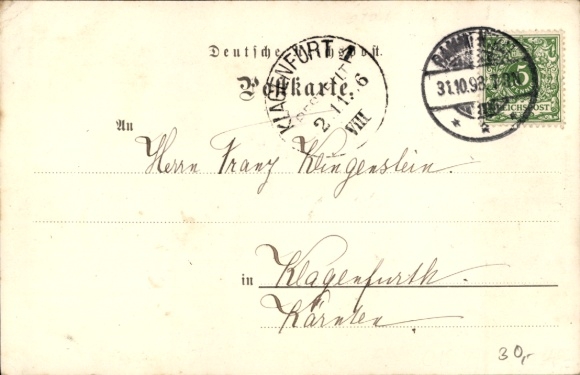 Deutsche Reichspost.
Postkarte.
KLAGENFURT 1
2 11 6
VIII
31.10.96 7-8N
5
REICHSPOST
An
Herrn Franz Klingenstein.
in Klagenfurth.
Kärnten
30,-